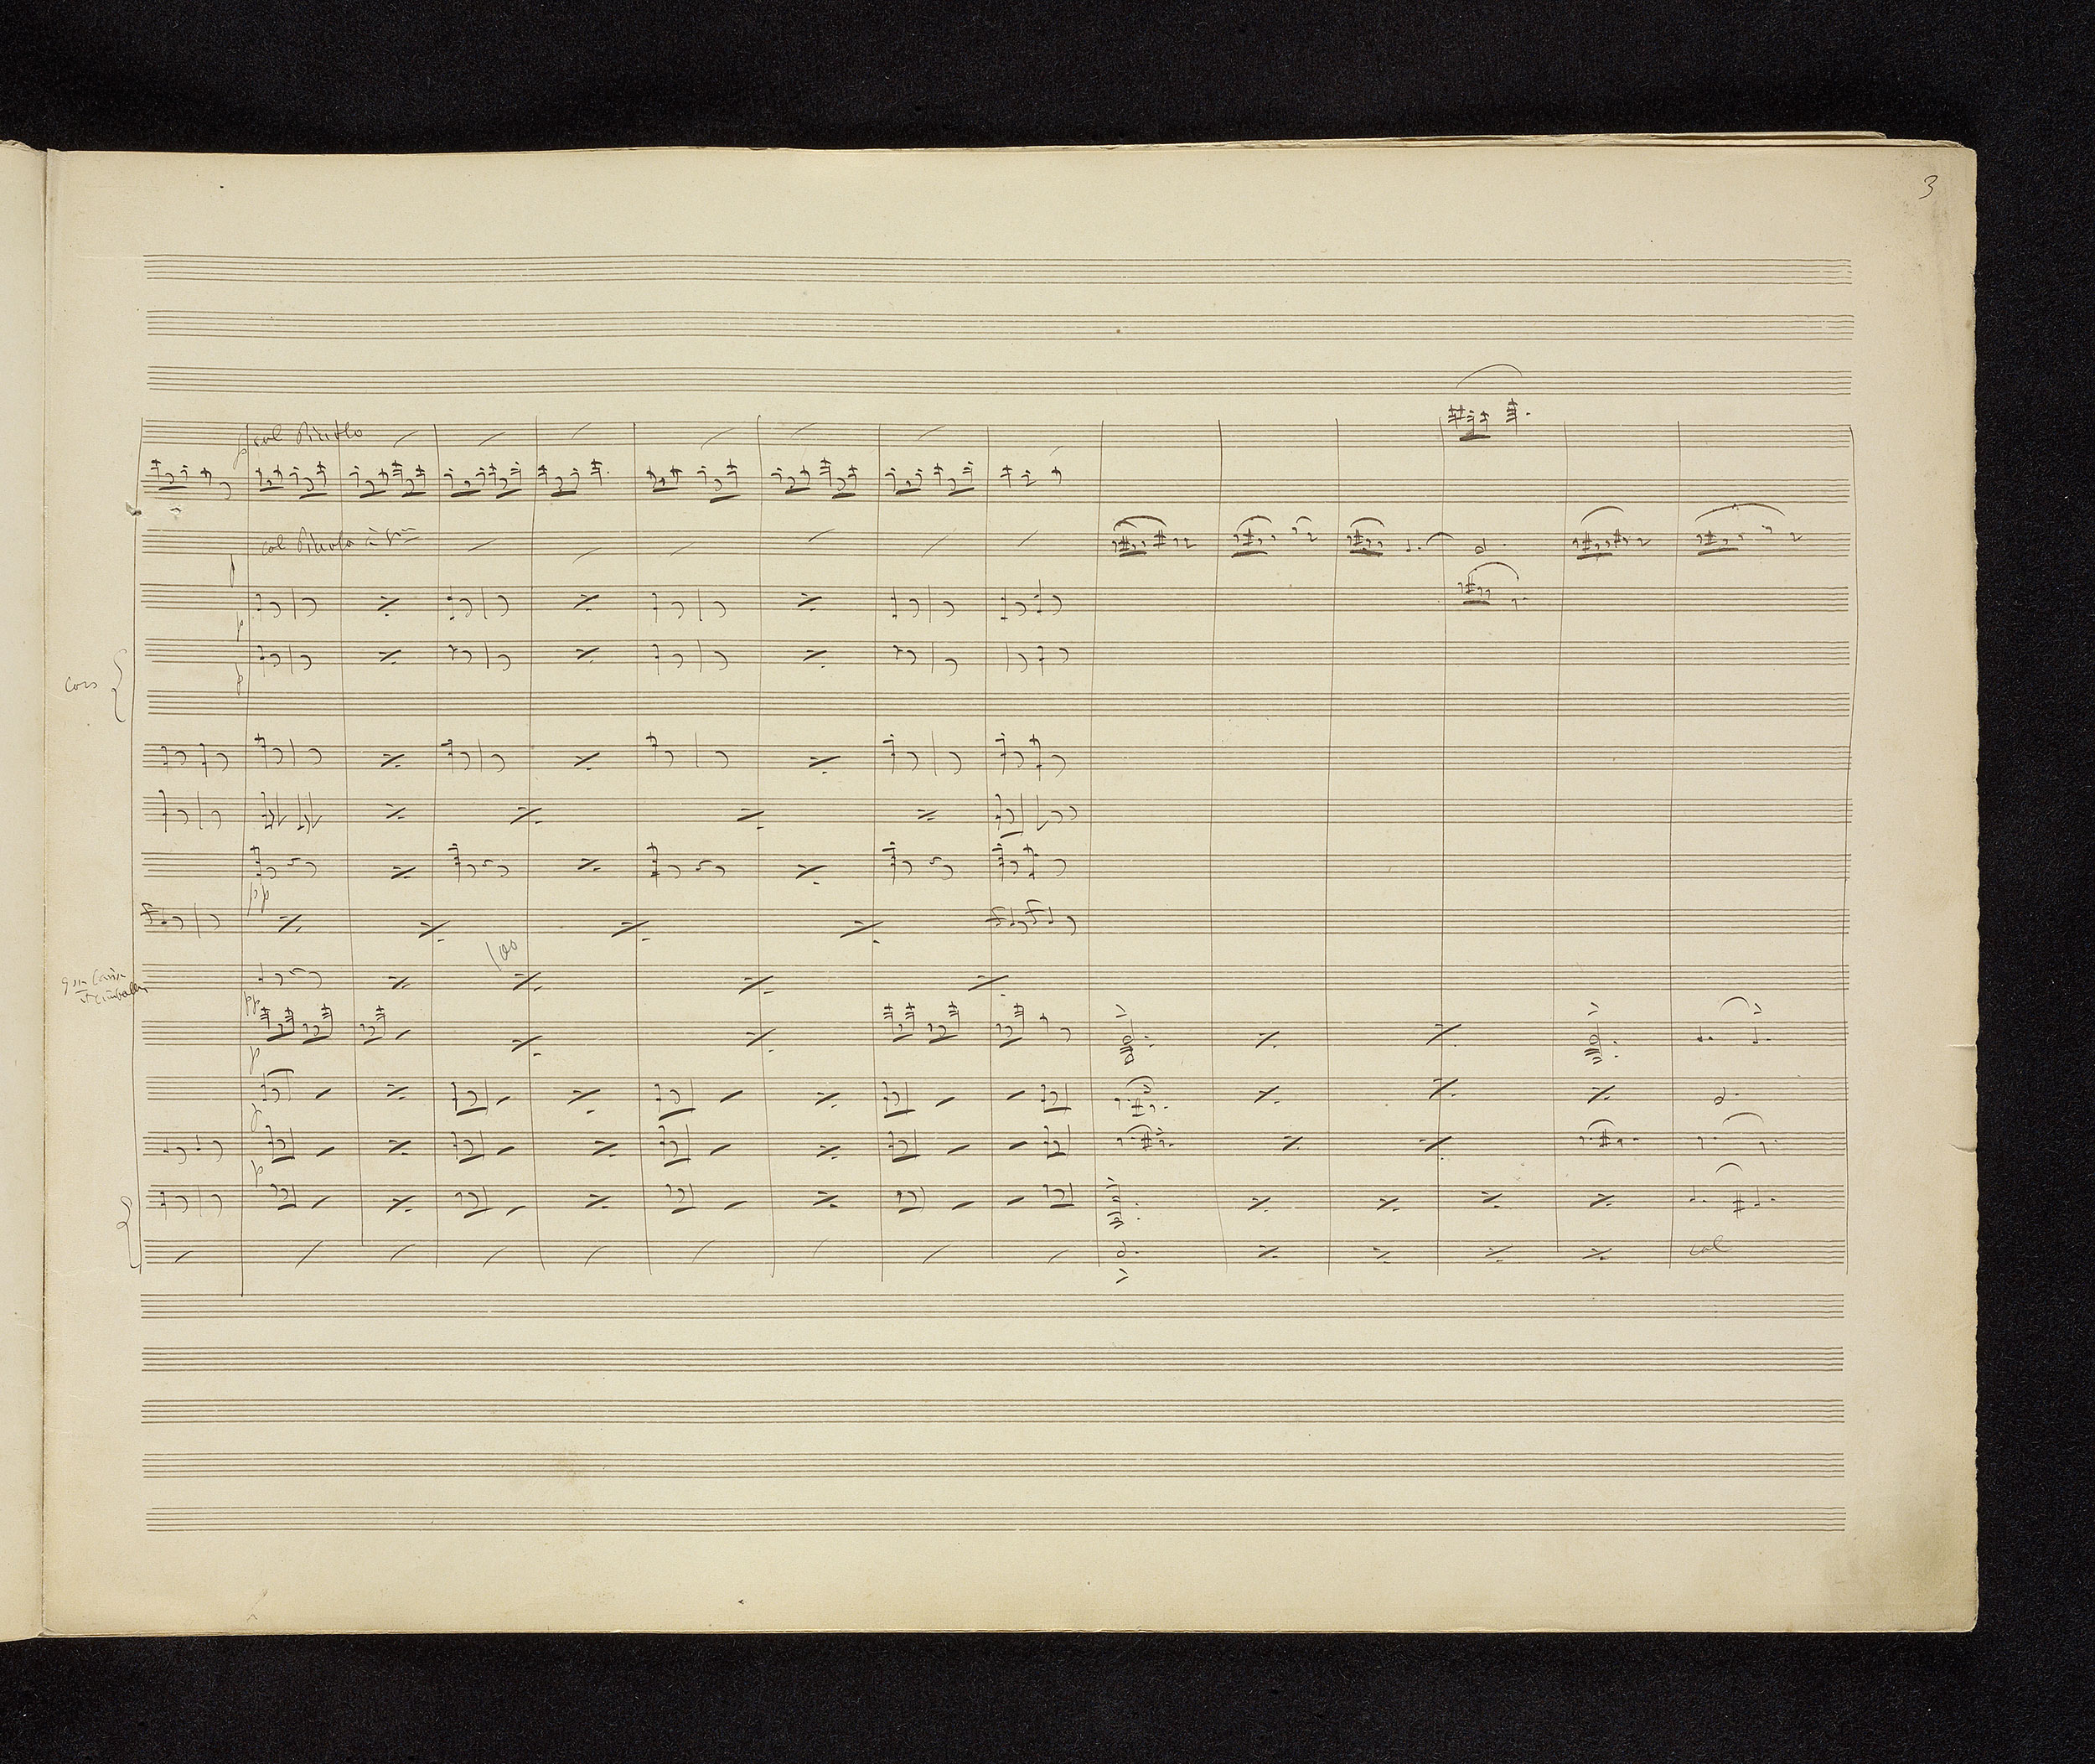 3
p col Piccolo
col Piccolo à 8va
p
p
Cors
p
pp
100
gsse Caisse
et Cimballes
pp
p
p
p
col